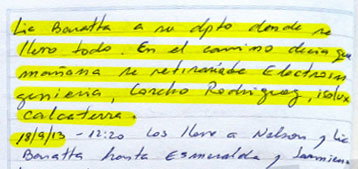 Lic Baratta a su dpto donde se
llevo todo. En el camino decia que
mañana se retirariade Electroin
genieria, Corcho Rodriguez, isolux
Calcaterra.
18/9/13 - 12:20 Los lleve a Nelson y Lic
Baratta hasta Esmeralda y Sarmiento